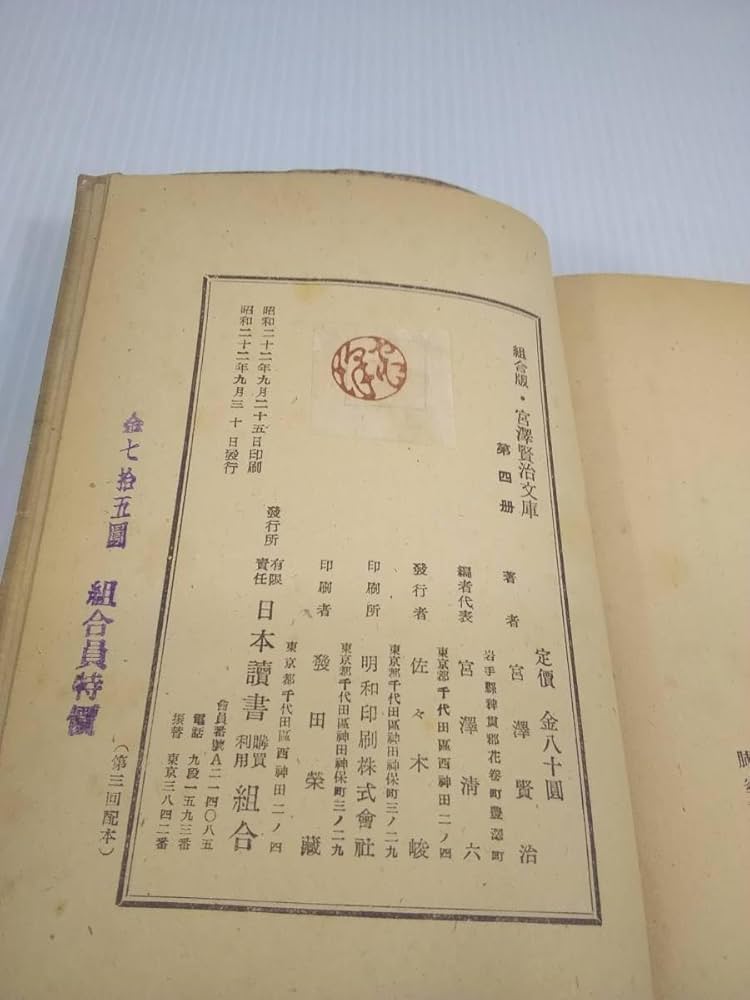 組合版・宮澤賢治文庫
第四册
定價 金八十圓
著者 宮澤賢治
岩手縣稗貫郡花巻町豊澤町
編者代表 宮澤淸六
東京都千代田區西神田二ノ四
發行者 佐々木峻
東京都千代田區神田神保町三ノ二九
印刷所 明和印刷株式會社
東京都千代田區神田神保町三ノ二九
印刷者 發田榮藏
東京都千代田區西神田二ノ四
發行所 有限責任 日本讀書購買利用組合
會員番號A二一四〇八五
電話 九段一五九三番
振替 東京三八四二番
昭和二十二年九月二十五日印刷
昭和二十二年九月三十日發行
金七拾五圓 組合員特價
(第三回配本)